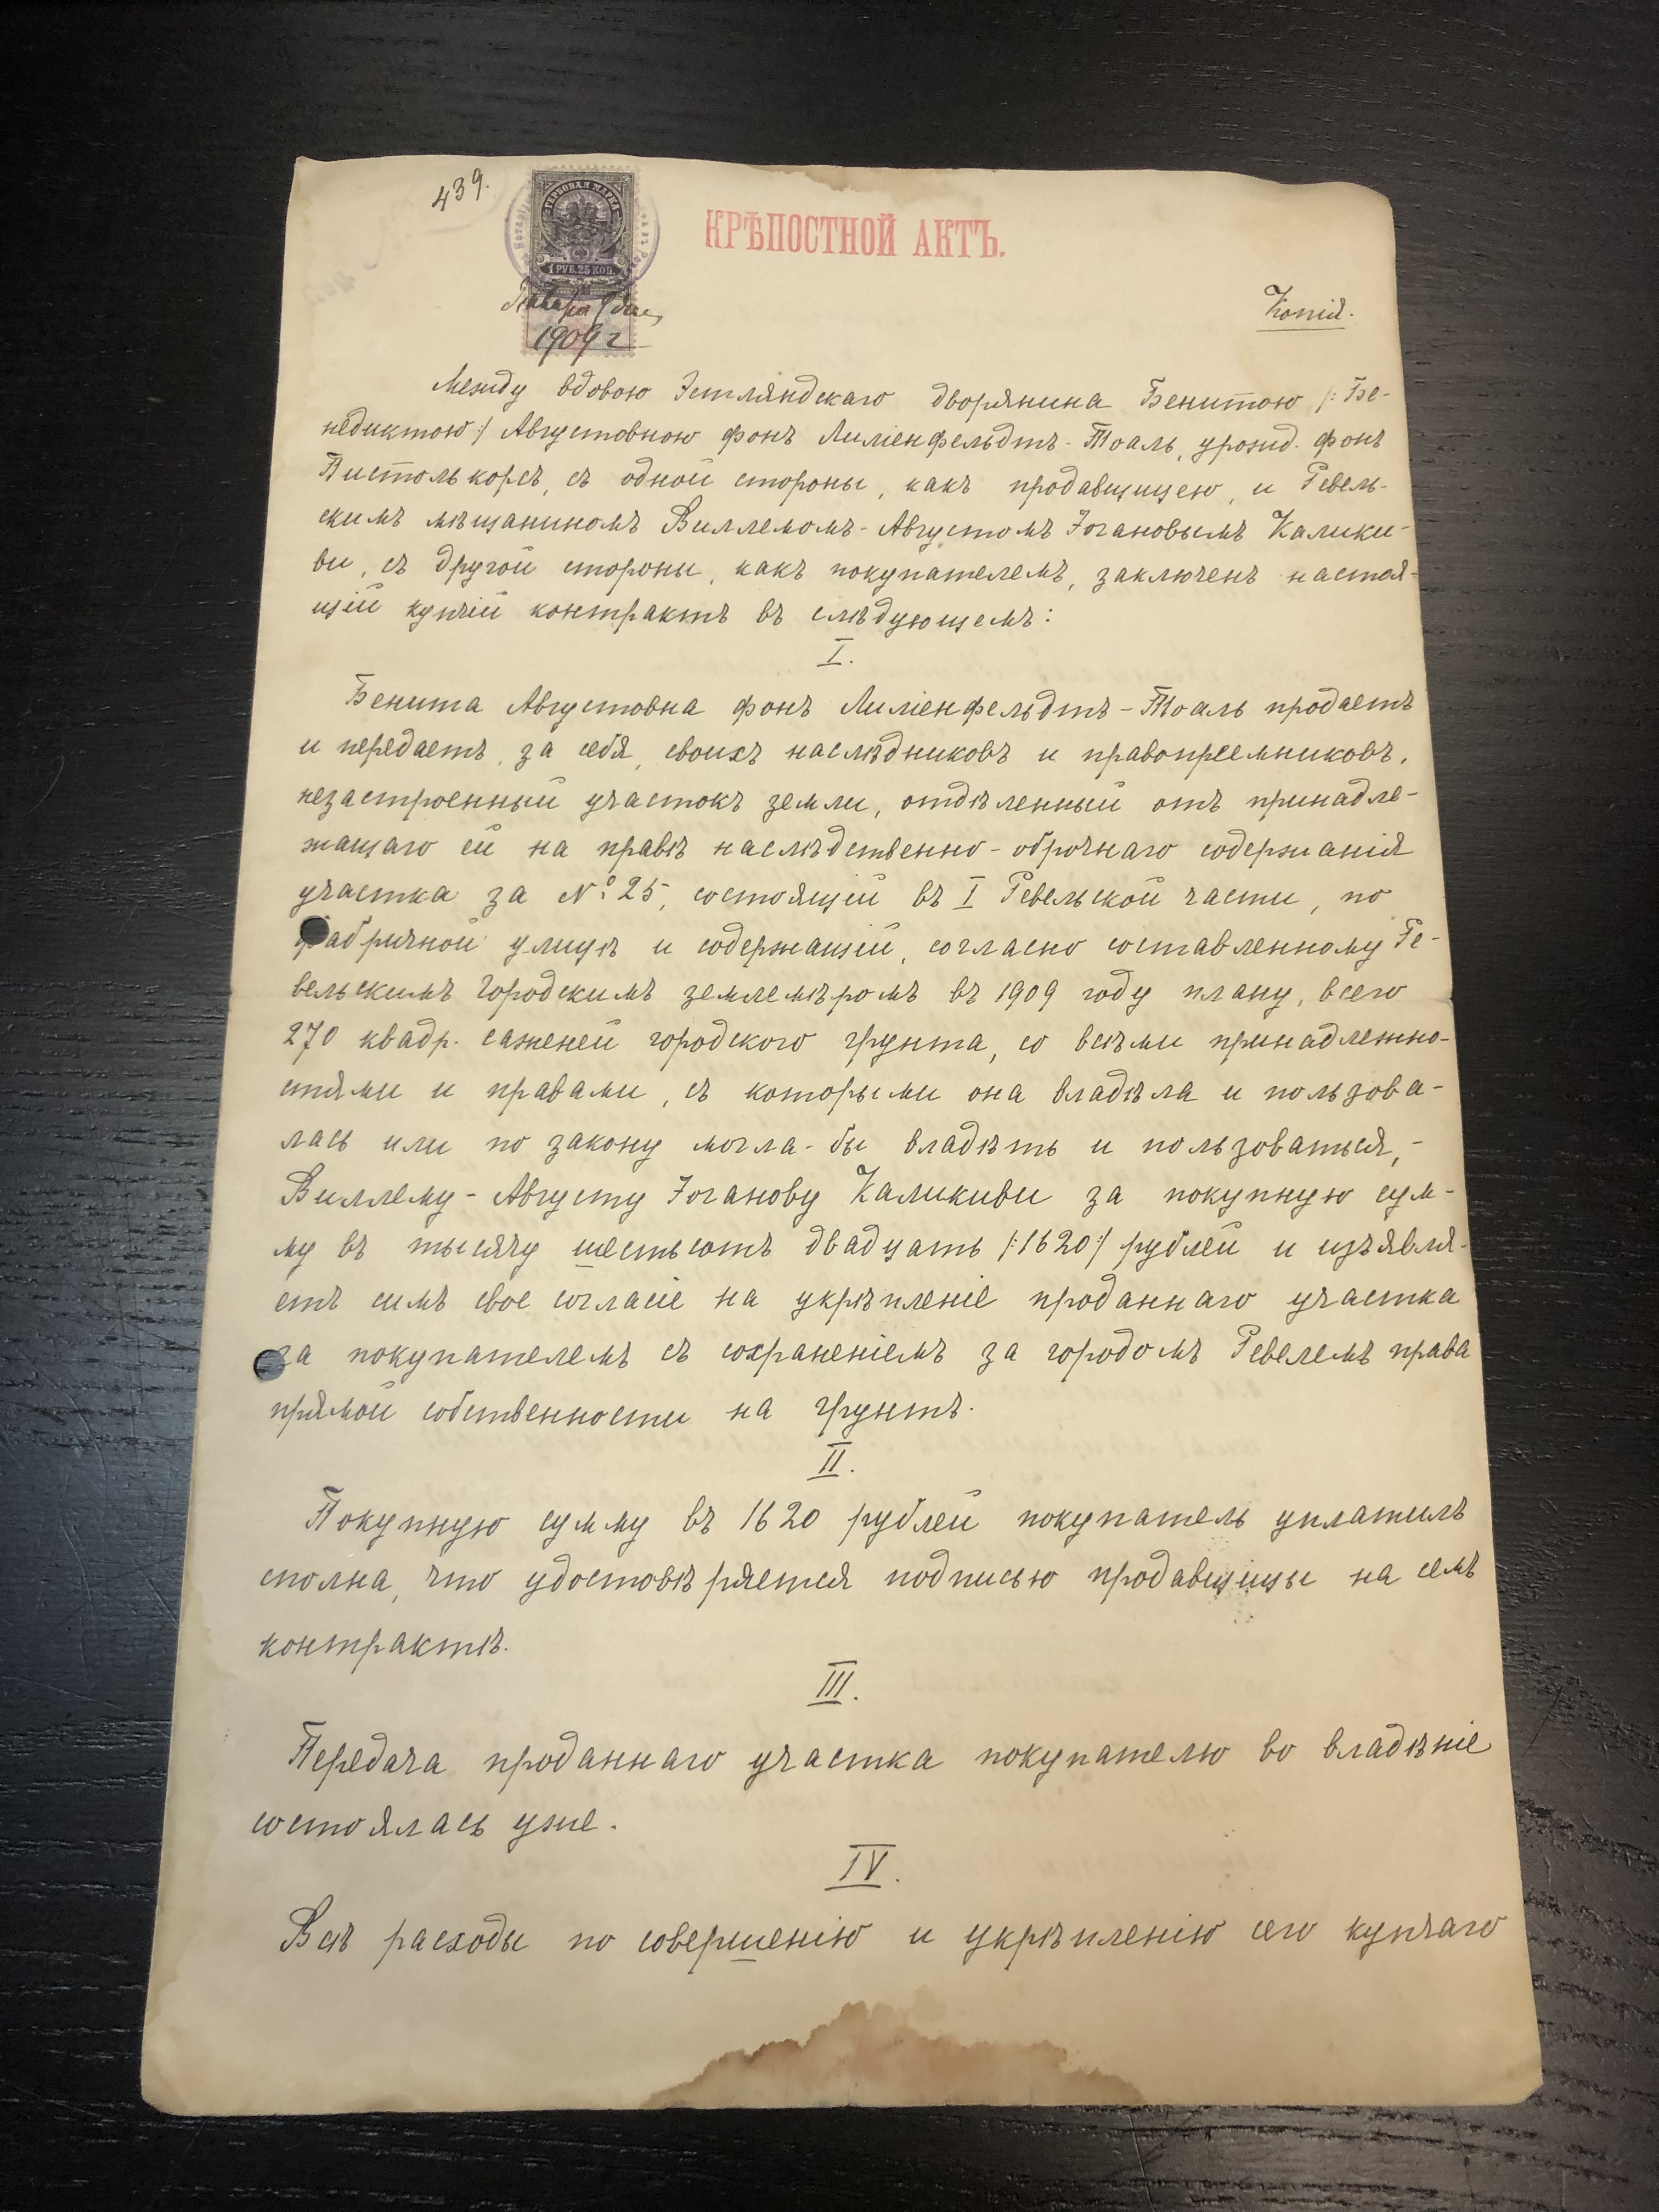 439.
ГЕРБОВАЯ МАРКА
1 РУБ. 25 КОП.
1909 г
КРѢПОСТНОЙ АКТЪ.
Копія.
Между вдовою Эстляндскаго дворянина Бенитою /: Бе-
недиктою :/ Августовною фонъ Лиліенфельдтъ-Тоаль, урожд. фонъ
Пистолькорсъ, съ одной стороны, какъ продавщицею, и Ревель-
скимъ мѣщаниномъ Виллемомъ-Августомъ Іогановымъ Калики-
ви, съ другой стороны, какъ покупателемъ, заключенъ настоя-
щій купчій контрактъ въ слѣдующемъ:
I.
Бенита Августовна фонъ Лиліенфельдтъ-Тоаль продаетъ
и передаетъ, за себя, своихъ наслѣдниковъ и правопреемниковъ,
незастроенный участокъ земли, отдѣленный отъ принадле-
жащаго ей на правѣ наслѣдственно-оброчнаго содержанія
участка за №25, состоящій въ I Ревельской части, по
Фабричной улицѣ и содержащій, согласно составленному Ре-
вельскимъ Городскимъ землемѣромъ въ 1909 году плану, всего
270 квадр. саженей городского грунта, со всѣми принадлежно-
стями и правами, съ которыми она владѣла и пользова-
лась или по закону могла-бы владѣть и пользоваться, -
Виллему-Августу Іоганову Каликиви за покупную сум-
му въ тысячу шестьсотъ двадцать /:1620:/ рублей и изъявля-
етъ симъ свое согласіе на укрѣпленіе проданнаго участка
за покупателемъ съ сохраненіемъ за городомъ Ревелемъ права
прямой собственности на грунтъ.
II.
Покупную сумму въ 1620 рублей покупатель уплатилъ
сполна, что удостовѣряется подписью продавщицы на семъ
контрактѣ.
III.
Передача проданнаго участка покупателю во владѣніе
состоялась уже.
IV.
Всѣ расходы по совершенію и укрѣпленію сего купчаго